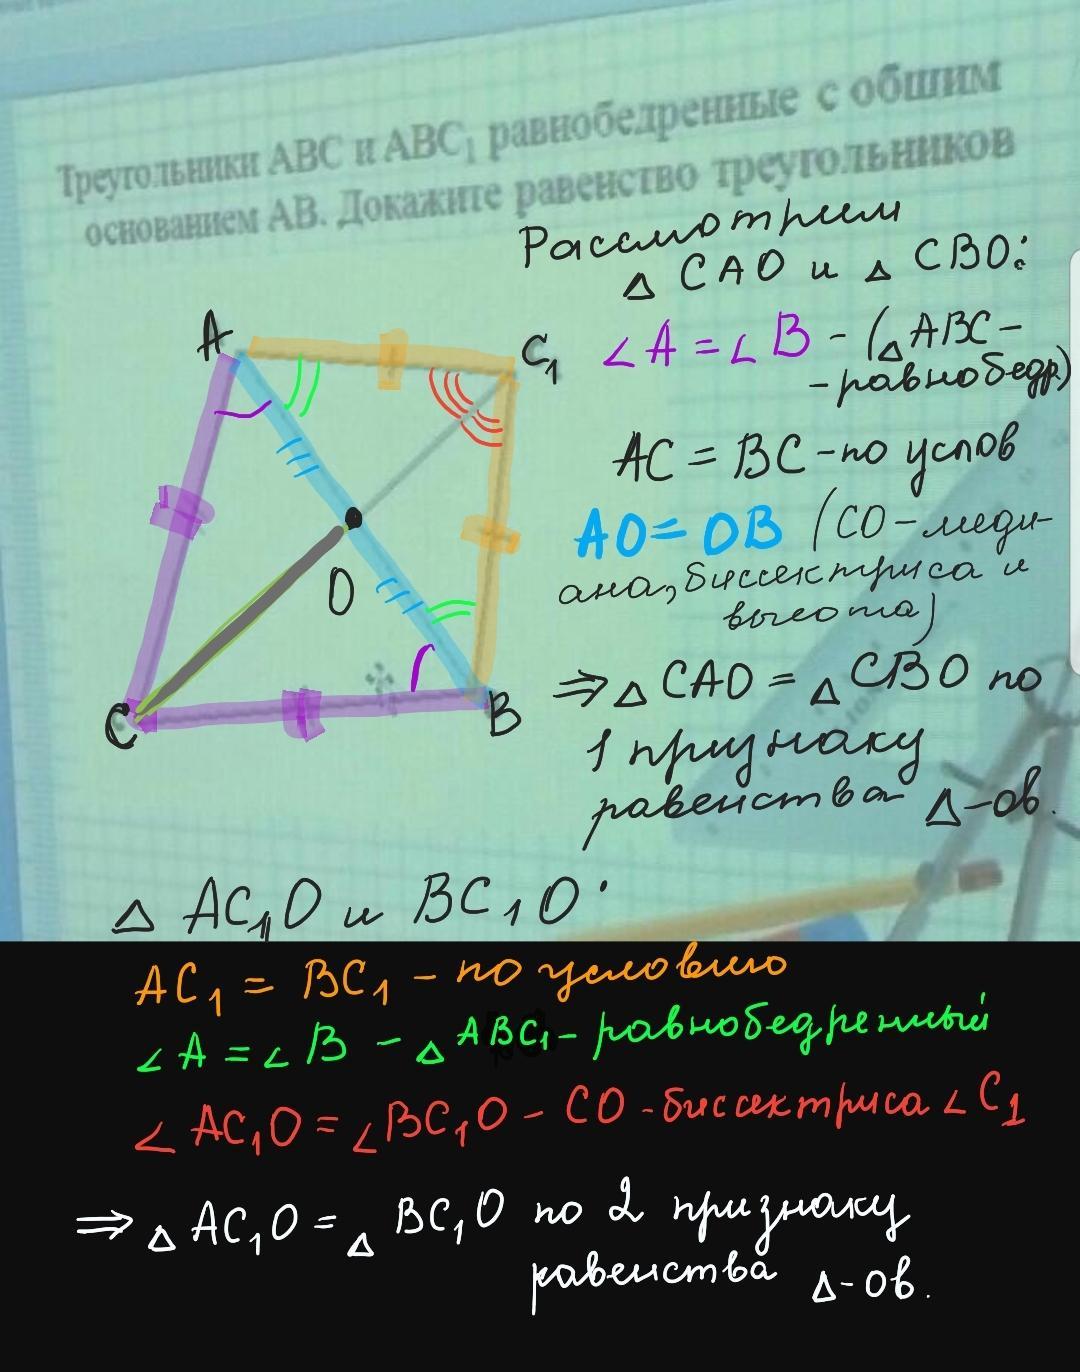 Треугольники АВС и АВС₁ равнобедренные с общим
основанием АВ. Докажите равенство треугольников
Рассмотрим
△ CAO и △ CBO:
∠A = ∠B - (△ABC -
- равнобедр)
A
C₁
AC = BC - по услов
AO = OB (CO - меди-
ана, биссектриса и
высота)
O
C
B
⇒ △ CAO = △ CBO по
1 признаку
равенства △-ов.
△ AC₁O и BC₁O:
AC₁ = BC₁ - по условию
∠A = ∠B - △ ABC₁ - равнобедренный
∠AC₁O = ∠BC₁O - CO - биссектриса ∠C₁
⇒ △ AC₁O = △ BC₁O по 2 признаку
равенства △-ов.